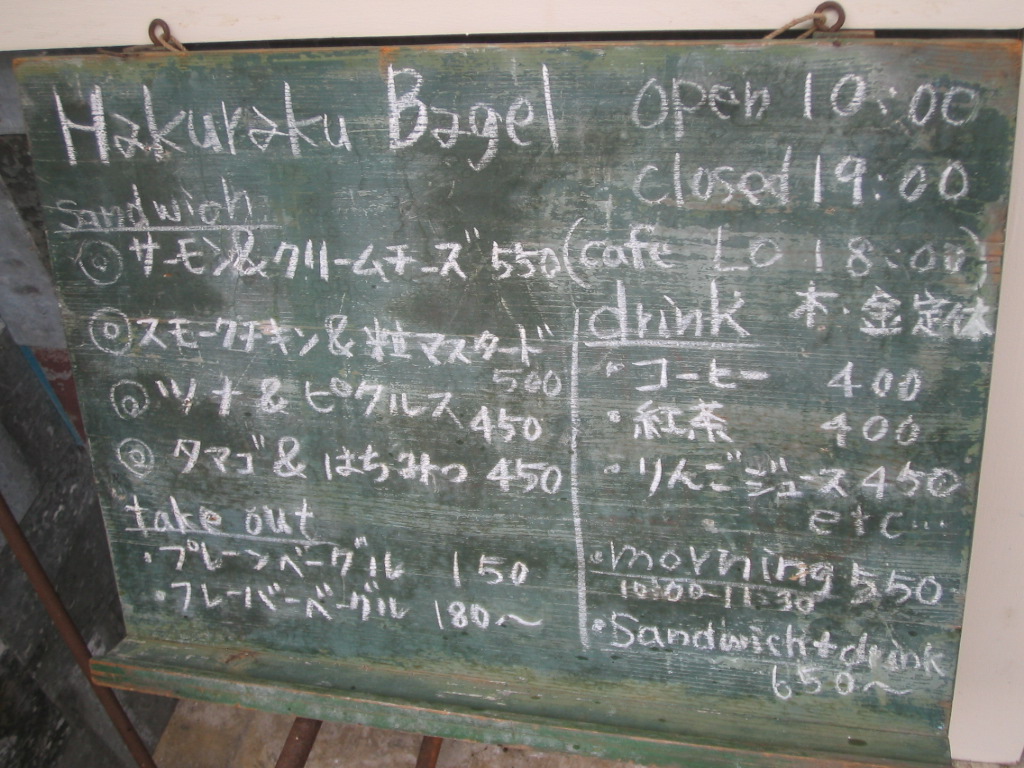 Hakuraku Bagel
open 10:00
closed 19:00
(cafe LO 18:00)
木・金定休
Sandwich
◎サーモン&クリームチーズ 550
◎スモークチキン&粒マスタード
500
◎ツナ&ピクルス 450
◎タマゴ&はちみつ 450
take out
・プレーンベーグル 150
・フレーバーベーグル 180〜
drink
・コーヒー 400
・紅茶 400
・りんごジュース 450
etc…
・morning 550
10:00-11:30
・Sandwich+drink
650〜